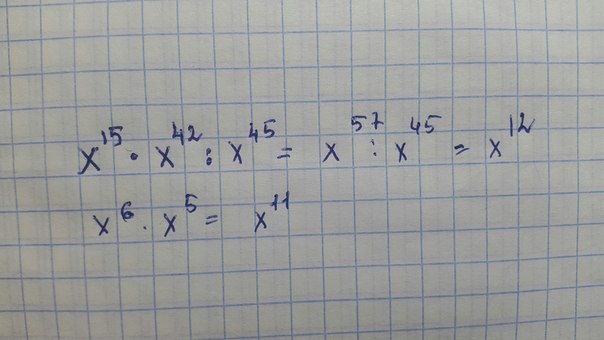 x¹⁵ · x⁴² : x⁴⁵ = x⁵⁷ : x⁴⁵ = x¹²
x⁶ · x⁵ = x¹¹